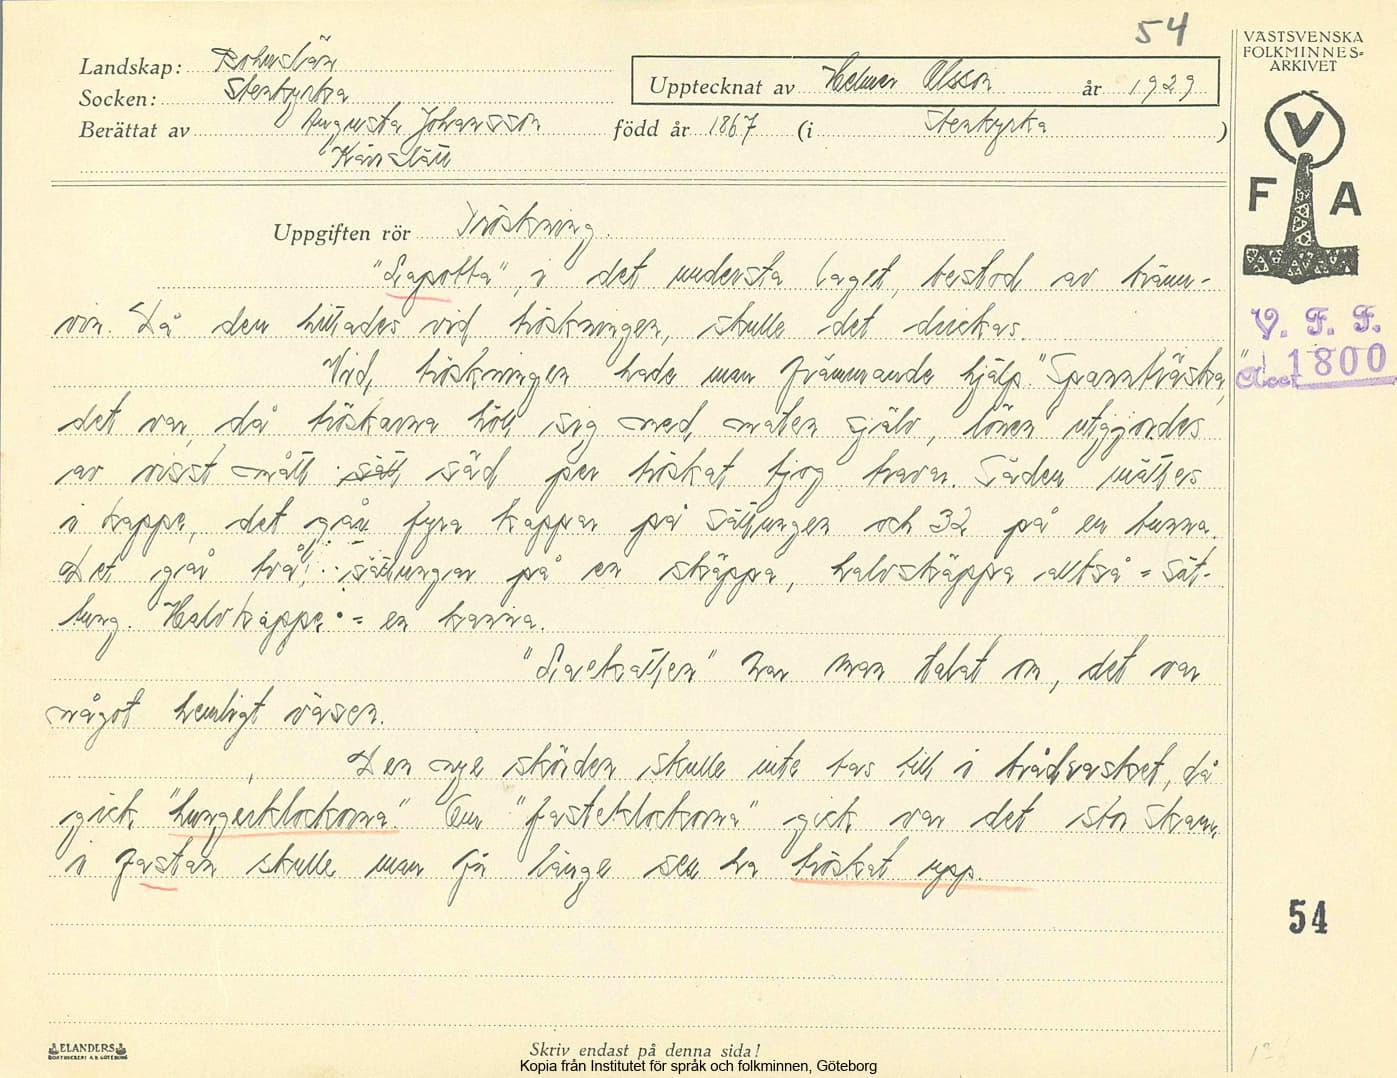 54
VÄSTSVENSKA
FOLKMINNES=
ARKIVET
Landskap: Bohuslän
Socken: Stenkyrka
Upptecknat av Helmer Olsson år 1929
Berättat av Augusta Johansson född år 1867 (i Stenkyrka)
Kärrslätt
V
F A
Uppgiften rör Tröskning.
"Lapotta", i det understa laget, bestod av bränn-
vin. Då den hittades vid tröskningen, skulle det drickas.
V. F. F.
Acc: 1800
Vid tröskningen hade man främmande hjälp. "Spannträska",
det var, då tröskarna höll sig med maten själv, lönen utgjordes
av visst mått säd per tröskat tjog travar. Säden mättes
i kappe, det går fyra kappar på sättungen och 32 på en tunna.
Det går två sättungar på en skäppa, halvskäppa alltså = sät-
tung. Halvkappe = en kanna.
har man talat om, det var
något hemligt väsen.
Den nye skörden skulle inte tas till i brådrasket, då
gick "hungerklockorna". Om "fasteklockorna" gick var det stor skam,
i fastan skulle man för länge sen ha tröskat upp.
54
ELANDERS
BOKTRYCKERI A.B. GÖTEBORG
Skriv endast på denna sida!
Kopia från Institutet för språk och folkminnen, Göteborg